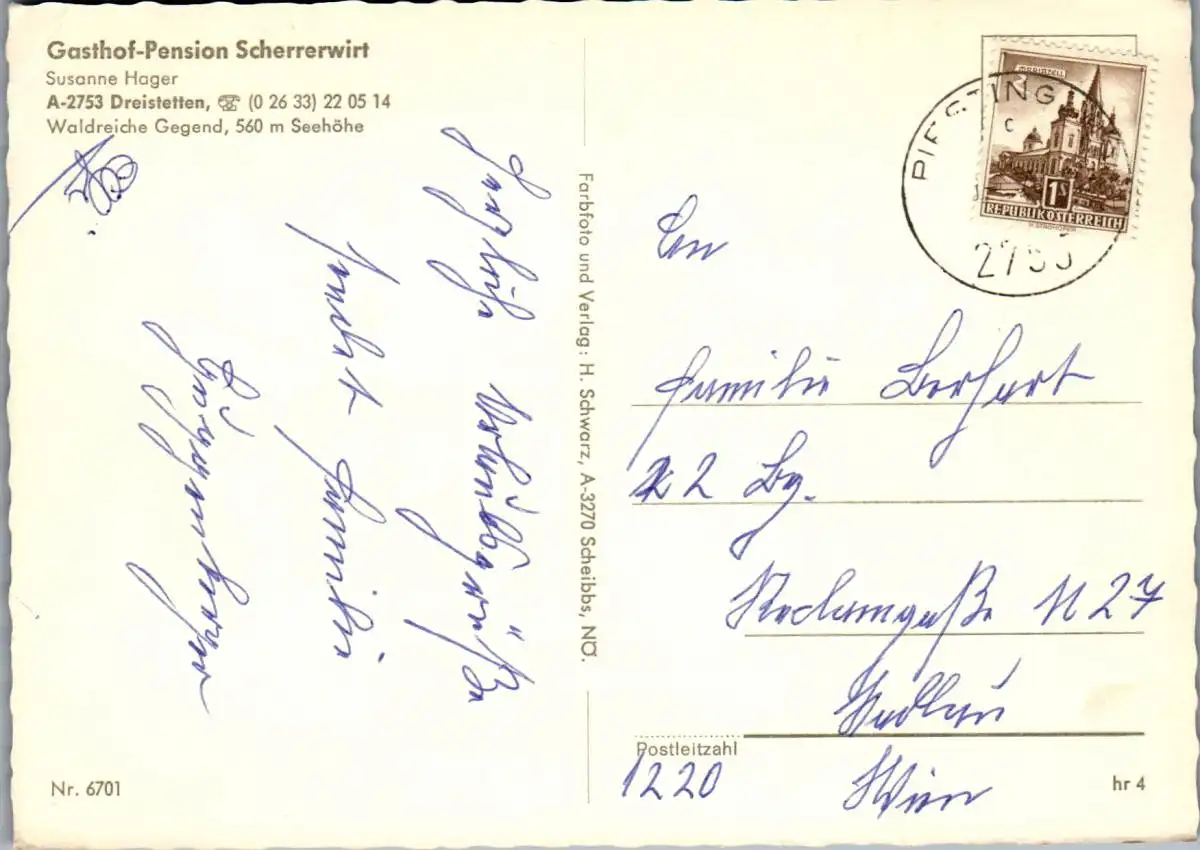 Gasthof-Pension Scherrerwirt
Susanne Hager
A-2753 Dreistetten, ☏ (0 26 33) 22 05 14
Waldreiche Gegend, 560 m Seehöhe
Herzliche Urlaubsgrüße
sendet Familie
Farbfoto und Verlag: H. Schwarz, A-3270 Scheibbs, NÖ.
Nr. 6701
MARIAZELL
1S
REPUBLIK ÖSTERREICH
PIESTING
c
An
Familie
22 Bz.
27
Postleitzahl
1220 Wien
hr 4